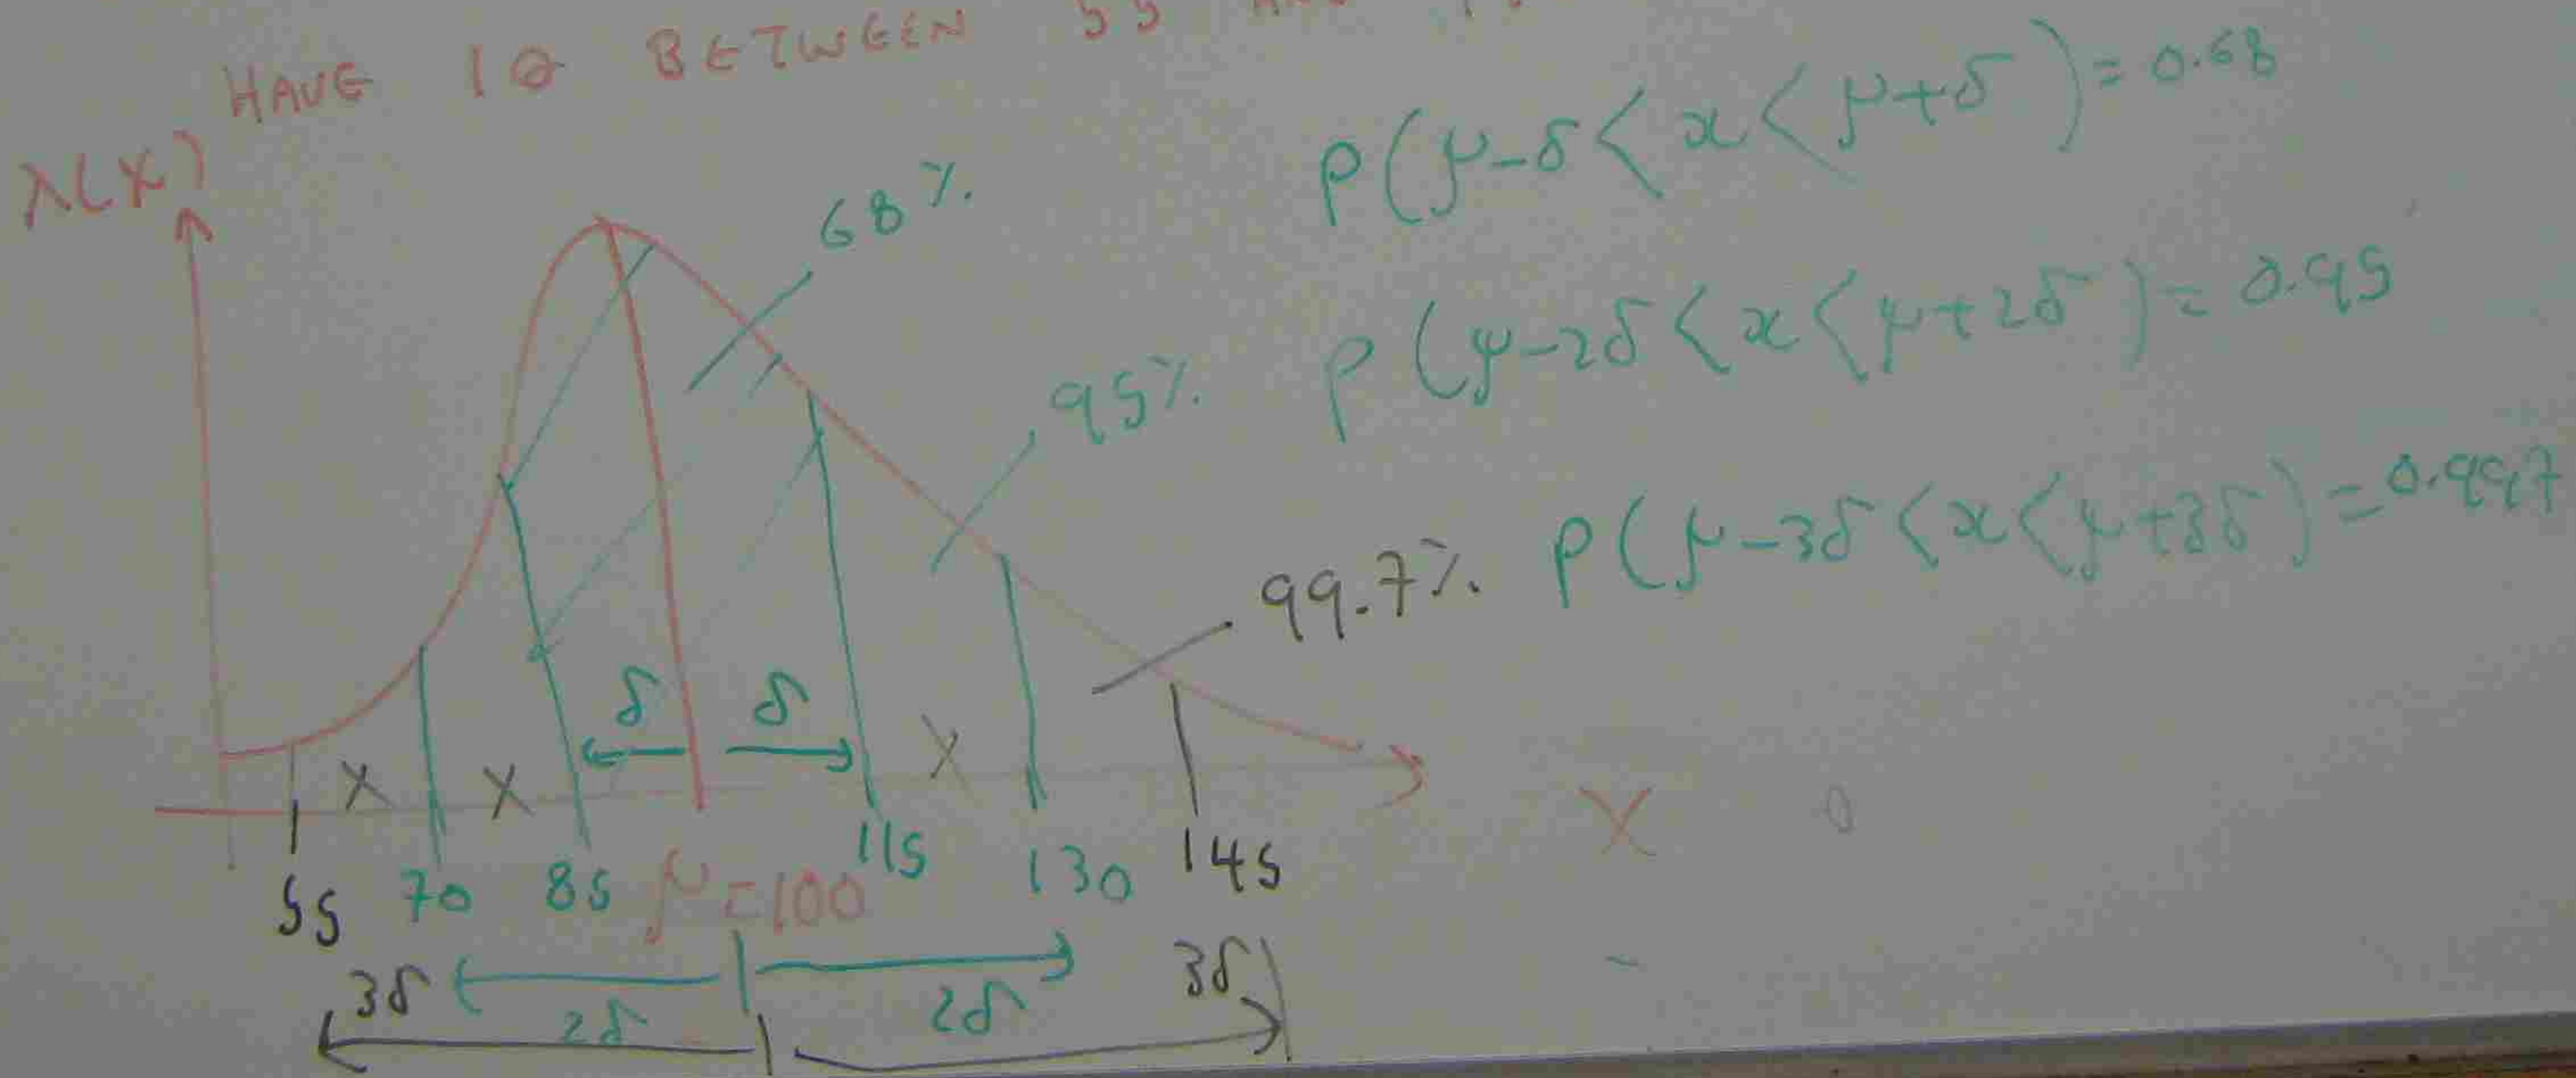 HAVE IQ BETWEEN 55
λ(X)
68%
P(μ-δ<x<μ+δ)=0.68
95%
P(μ-2δ<x<μ+2δ)=0.95
99.7%
P(μ-3δ<x<μ+3δ)=0.997
δ δ
X X X
X
55 70 85 μ=100 115 130 145
3δ 2δ 2δ 3δ